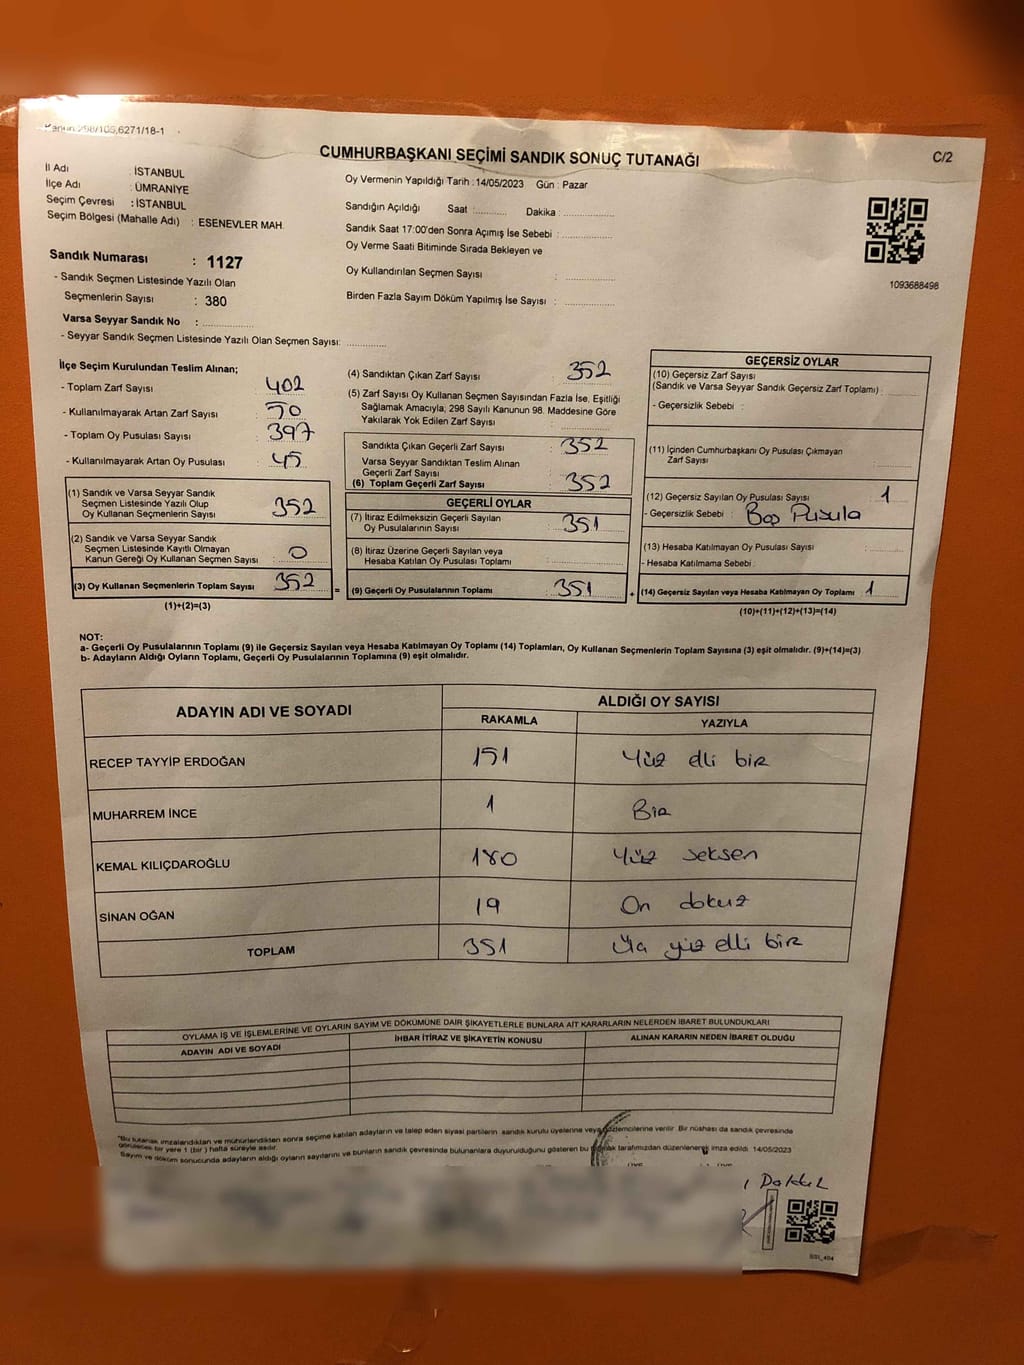 Kanun 298/105,6271/18-1
CUMHURBAŞKANI SEÇİMİ SANDIK SONUÇ TUTANAĞI
C/2
İl Adı : İSTANBUL
İlçe Adı : ÜMRANİYE
Seçim Çevresi : İSTANBUL
Seçim Bölgesi (Mahalle Adı) : ESENEVLER MAH.
Sandık Numarası : 1127
- Sandık Seçmen Listesinde Yazılı Olan
Seçmenlerin Sayısı : 380
Varsa Seyyar Sandık No : ................
- Seyyar Sandık Seçmen Listesinde Yazılı Olan Seçmen Sayısı: ............
Oy Vermenin Yapıldığı Tarih : 14/05/2023 Gün : Pazar
Sandığın Açıldığı Saat :........... Dakika : .................
Sandık Saat 17:00'den Sonra Açımış İse Sebebi : ................
Oy Verme Saati Bitiminde Sırada Bekleyen ve
Oy Kullandırılan Seçmen Sayısı : ................
Birden Fazla Sayım Döküm Yapılmış İse Sayısı : ................
1093688498
İlçe Seçim Kurulundan Teslim Alınan;
- Toplam Zarf Sayısı : 402
- Kullanılmayarak Artan Zarf Sayısı : 50
- Toplam Oy Pusulası Sayısı : 397
- Kullanılmayarak Artan Oy Pusulası : 45
(1) Sandık ve Varsa Seyyar Sandık
Seçmen Listesinde Yazılı Olup
Oy Kullanan Seçmenlerin Sayısı : 352
(2) Sandık ve Varsa Seyyar Sandık
Seçmen Listesinde Kayıtlı Olmayan
Kanun Gereği Oy Kullanan Seçmen Sayısı : 0
(3) Oy Kullanan Seçmenlerin Toplam Sayısı : 352 =
(1)+(2)=(3)
(4) Sandıktan Çıkan Zarf Sayısı : 352
(5) Zarf Sayısı Oy Kullanan Seçmen Sayısından Fazla İse, Eşitliği
Sağlamak Amacıyla; 298 Sayılı Kanunun 98. Maddesine Göre
Yakılarak Yok Edilen Zarf Sayısı : ................
Sandıkta Çıkan Geçerli Zarf Sayısı : 352
Varsa Seyyar Sandıktan Teslim Alınan
Geçerli Zarf Sayısı :
(6) Toplam Geçerli Zarf Sayısı : 352
GEÇERLİ OYLAR
(7) İtiraz Edilmeksizin Geçerli Sayılan
Oy Pusulalarının Sayısı : 351
(8) İtiraz Üzerine Geçerli Sayılan veya
Hesaba Katılan Oy Pusulası Toplamı : ................
(9) Geçerli Oy Pusulalarının Toplamı : 351 +
GEÇERSİZ OYLAR
(10) Geçersiz Zarf Sayısı
(Sandık ve Varsa Seyyar Sandık Geçersiz Zarf Toplamı) : ............
- Geçersizlik Sebebi :
(11) İçinden Cumhurbaşkanı Oy Pusulası Çıkmayan
Zarf Sayısı : ............
(12) Geçersiz Sayılan Oy Pusulası Sayısı : 1
- Geçersizlik Sebebi : Boş Pusula
(13) Hesaba Katılmayan Oy Pusulası Sayısı : ............
- Hesaba Katılmama Sebebi :
(14) Geçersiz Sayılan veya Hesaba Katılmayan Oy Toplamı : 1
(10)+(11)+(12)+(13)=(14)
NOT:
a- Geçerli Oy Pusulalarının Toplamı (9) ile Geçersiz Sayılan veya Hesaba Katılmayan Oy Toplamı (14) Toplamları, Oy Kullanan Seçmenlerin Toplam Sayısına (3) eşit olmalıdır. (9)+(14)=(3)
b- Adayların Aldığı Oyların Toplamı, Geçerli Oy Pusulalarının Toplamına (9) eşit olmalıdır.
ADAYIN ADI VE SOYADI
ALDIĞI OY SAYISI
RAKAMLA YAZIYLA
RECEP TAYYİP ERDOĞAN 151 Yüz elli bir
MUHARREM İNCE 1 Bir
KEMAL KILIÇDAROĞLU 180 Yüz seksen
SİNAN OĞAN 19 On dokuz
TOPLAM 351 Üç yüz elli bir
OYLAMA İŞ VE İŞLEMLERİNE VE OYLARIN SAYIM VE DÖKÜMÜNE DAİR ŞİKAYETLERLE BUNLARA AİT KARARLARIN NELERDEN İBARET BULUNDUKLARI
ADAYIN ADI VE SOYADI İHBAR İTİRAZ VE ŞİKAYETİN KONUSU ALINAN KARARIN NEDEN İBARET OLDUĞU
"Bu tutanak imzalandıktan ve mühürlendikten sonra seçime katılan adayların ve talep eden siyasi partilerin sandık kurulu üyelerine veya gözlemcilerine verilir. Bir nüshası da sandık çevresinde
görülecek bir yere 1 (bir) hafta süreyle asılır.
Sayım ve döküm sonucunda adayların aldığı oyların sayılarını ve bunların sandık çevresinde bulunanlara duyurulduğunu gösteren bu tutanak tarafımızdan düzenlenerek imza edildi. 14/05/2023